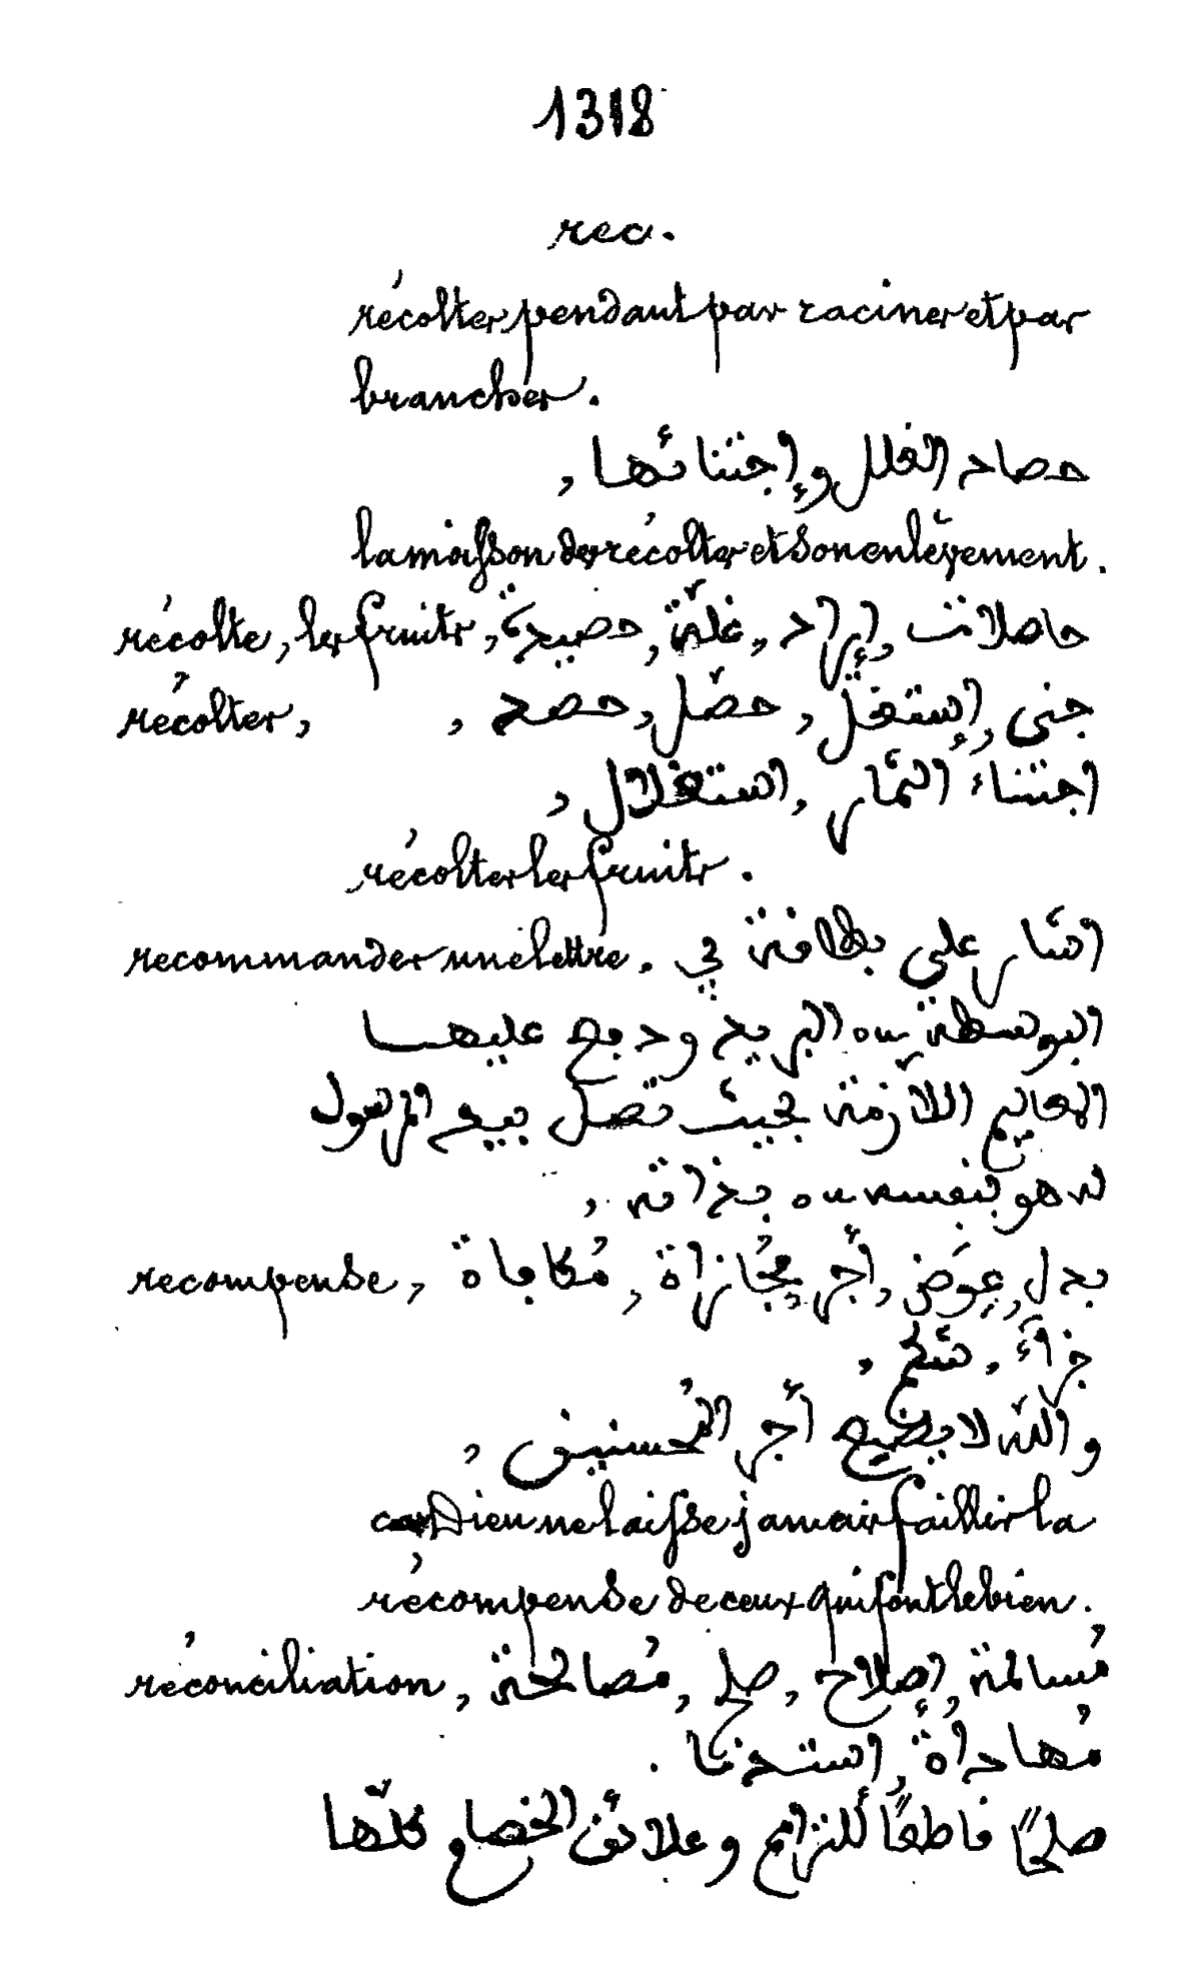 1318
rec.
récoltes pendant par racines et par
branches.
حصاد الغلل وإجتنائها ,
la moisson des récoltes et son enlèvement.
récolte, les fruits, حاصلات , إيراد , غلّة , حصيدة
récolter, جنى , إستغلّ , حصّل , حصد ,
اجتناءُ الثمار , استغلال ,
récolter les fruits.
recommander une lettre. اشار على بطاقة في
البوسطة ou البريد ودمج عليها
المعاليم اللّازمة بحيث تصل بيد المرسول
له هو بنفسه ou بذاته ,
recompense, بدل , عِوَض , أجر , مُجَازاة , مُكافاة
جزاءَ , شكم ,
والله لا يضيع أجر المُحسنين ,
car Dieu ne laisse jamais faillir la
récompense de ceux qui font le bien.
réconciliation, مُسالمة , إصلاح , صلح , مُصالحة
مُهادأة , استدخا .
صلحًا قاطعًا للنزايع وعلائق الخصام كلّها